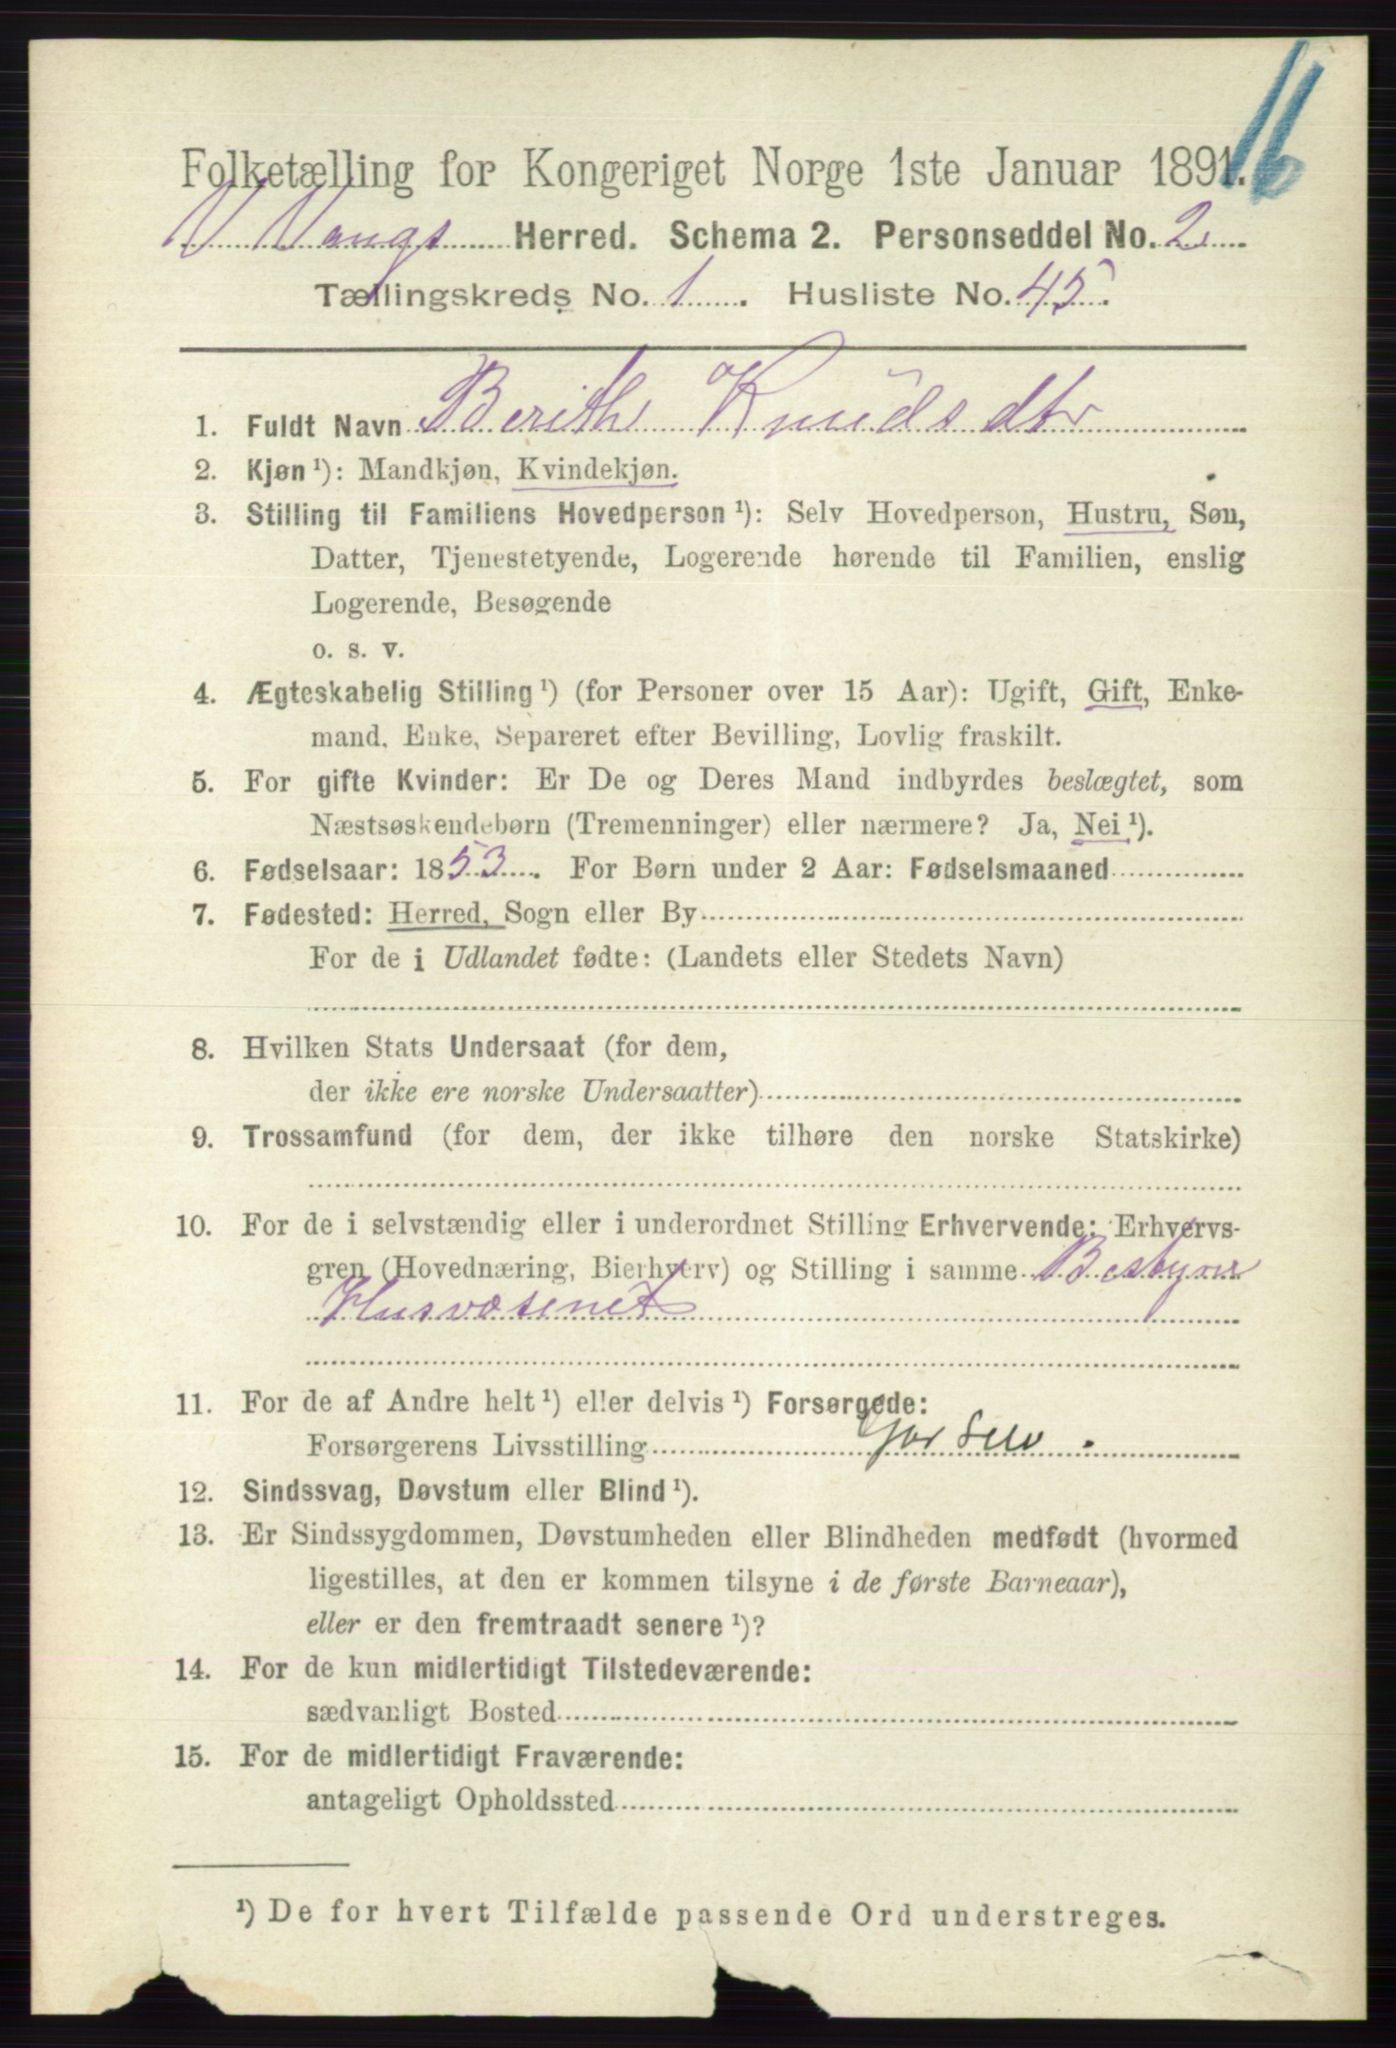 16
Folketælling for Kongeriget Norge 1ste Januar 1891.
V Vangs Herred. Schema 2. Personseddel No. 2
Tællingskreds No. 1. Husliste No. 45.
1. Fuldt Navn Berithe Knudsdtr
2. Kjøn ¹): Mandkjøn, Kvindekjøn.
3. Stilling til Familiens Hovedperson ¹): Selv Hovedperson, Hustru, Søn,
Datter, Tjenestetyende, Logerende hørende til Familien, enslig
Logerende, Besøgende
o. s. v.
4. Ægteskabelig Stilling ¹) (for Personer over 15 Aar): Ugift, Gift, Enke-
mand, Enke, Separeret efter Bevilling, Lovlig fraskilt.
5. For gifte Kvinder: Er De og Deres Mand indbyrdes beslægtet, som
Næstsøskendebørn (Tremenninger) eller nærmere? Ja, Nei ¹).
6. Fødselsaar: 1853. For Børn under 2 Aar: Fødselsmaaned
7. Fødested: Herred, Sogn eller By
For de i Udlandet fødte: (Landets eller Stedets Navn)
8. Hvilken Stats Undersaat (for dem,
der ikke ere norske Undersaatter)
9. Trossamfund (for dem, der ikke tilhøre den norske Statskirke)
10. For de i selvstændig eller i underordnet Stilling Erhvervende: Erhvervs-
gren (Hovednæring, Bierhverv) og Stilling i samme Bestyrer
Husvæsenet
11. For de af Andre helt ¹) eller delvis ¹) Forsørgede:
Forsørgerens Livsstilling Gar Selv.
12. Sindssvag, Døvstum eller Blind ¹).
13. Er Sindssygdommen, Døvstumheden eller Blindheden medfødt (hvormed
ligestilles, at den er kommen tilsyne i de første Barneaar),
eller er den fremtraadt senere ¹)?
14. For de kun midlertidigt Tilstedeværende:
sædvanligt Bosted
15. For de midlertidigt Fraværende:
antageligt Opholdssted
¹) De for hvert Tilfælde passende Ord understreges.